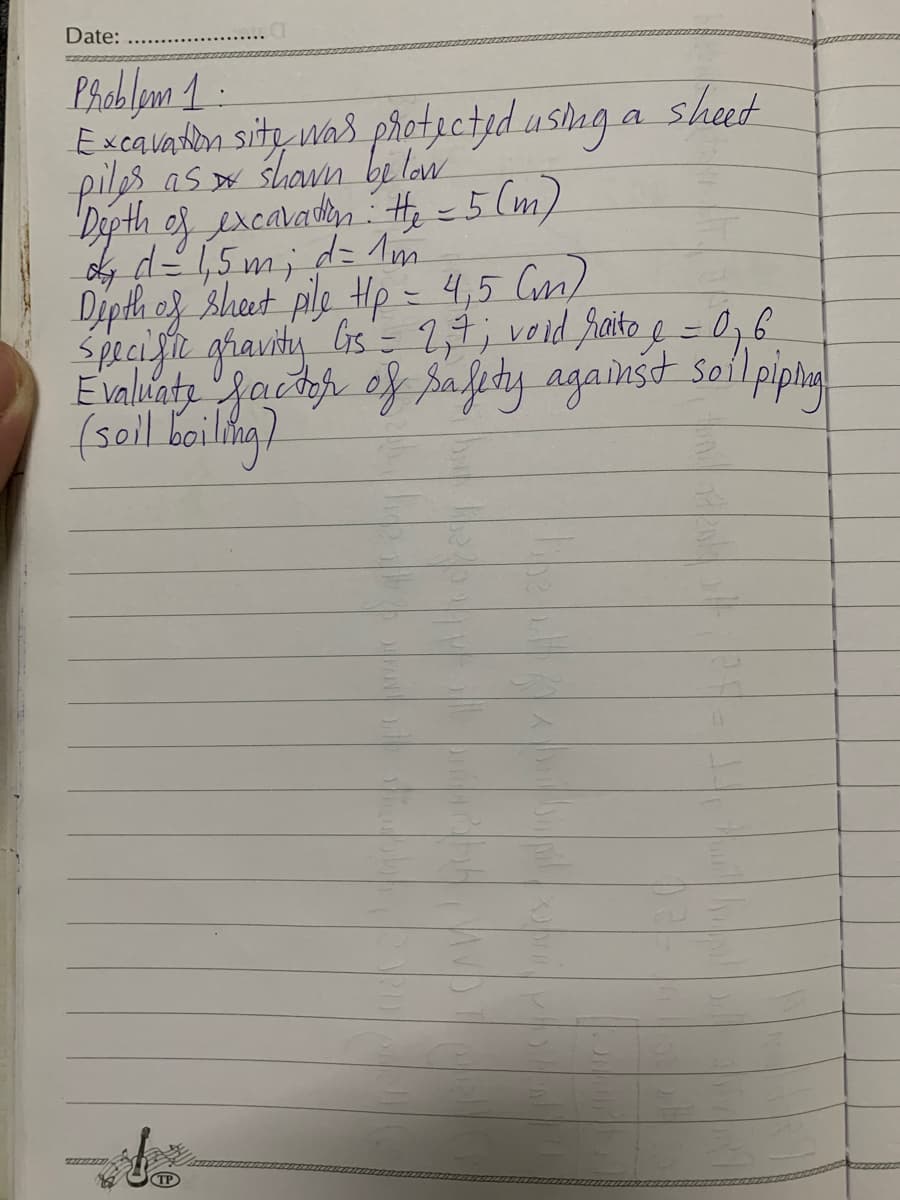 Date: ......................
Problem 1 :
Excavation site was protected using a sheet
piles as shown below
Depth of excavation : He = 5 (m)
d = 1,5 m ; d = 1m
Depth of sheet pile Hp = 4,5 (m)
Specific gravity Gs = 2,7 ; void raito e = 0,6
Evaluate factor of safety against soil piping
(soil boiling)
TP